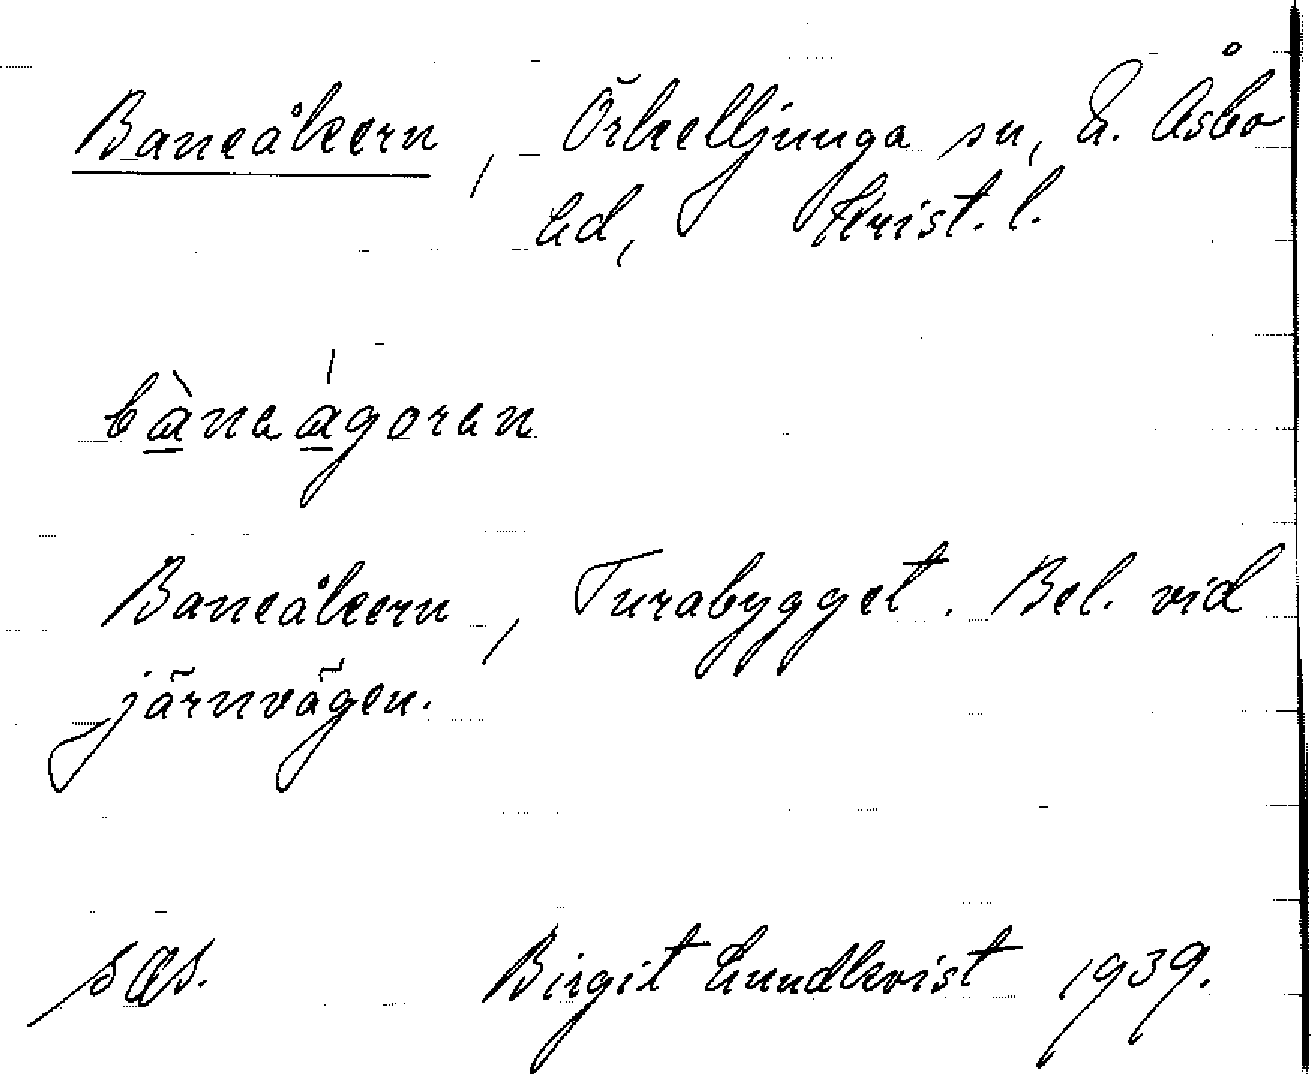 Baneåkern, Örkelljunga sn, N. Åsbo
hd, Krist. l.
bàneágoren
Baneåkern, Turabygget. Bel. vid
järnvägen.
Birgit Lundkvist 1939.